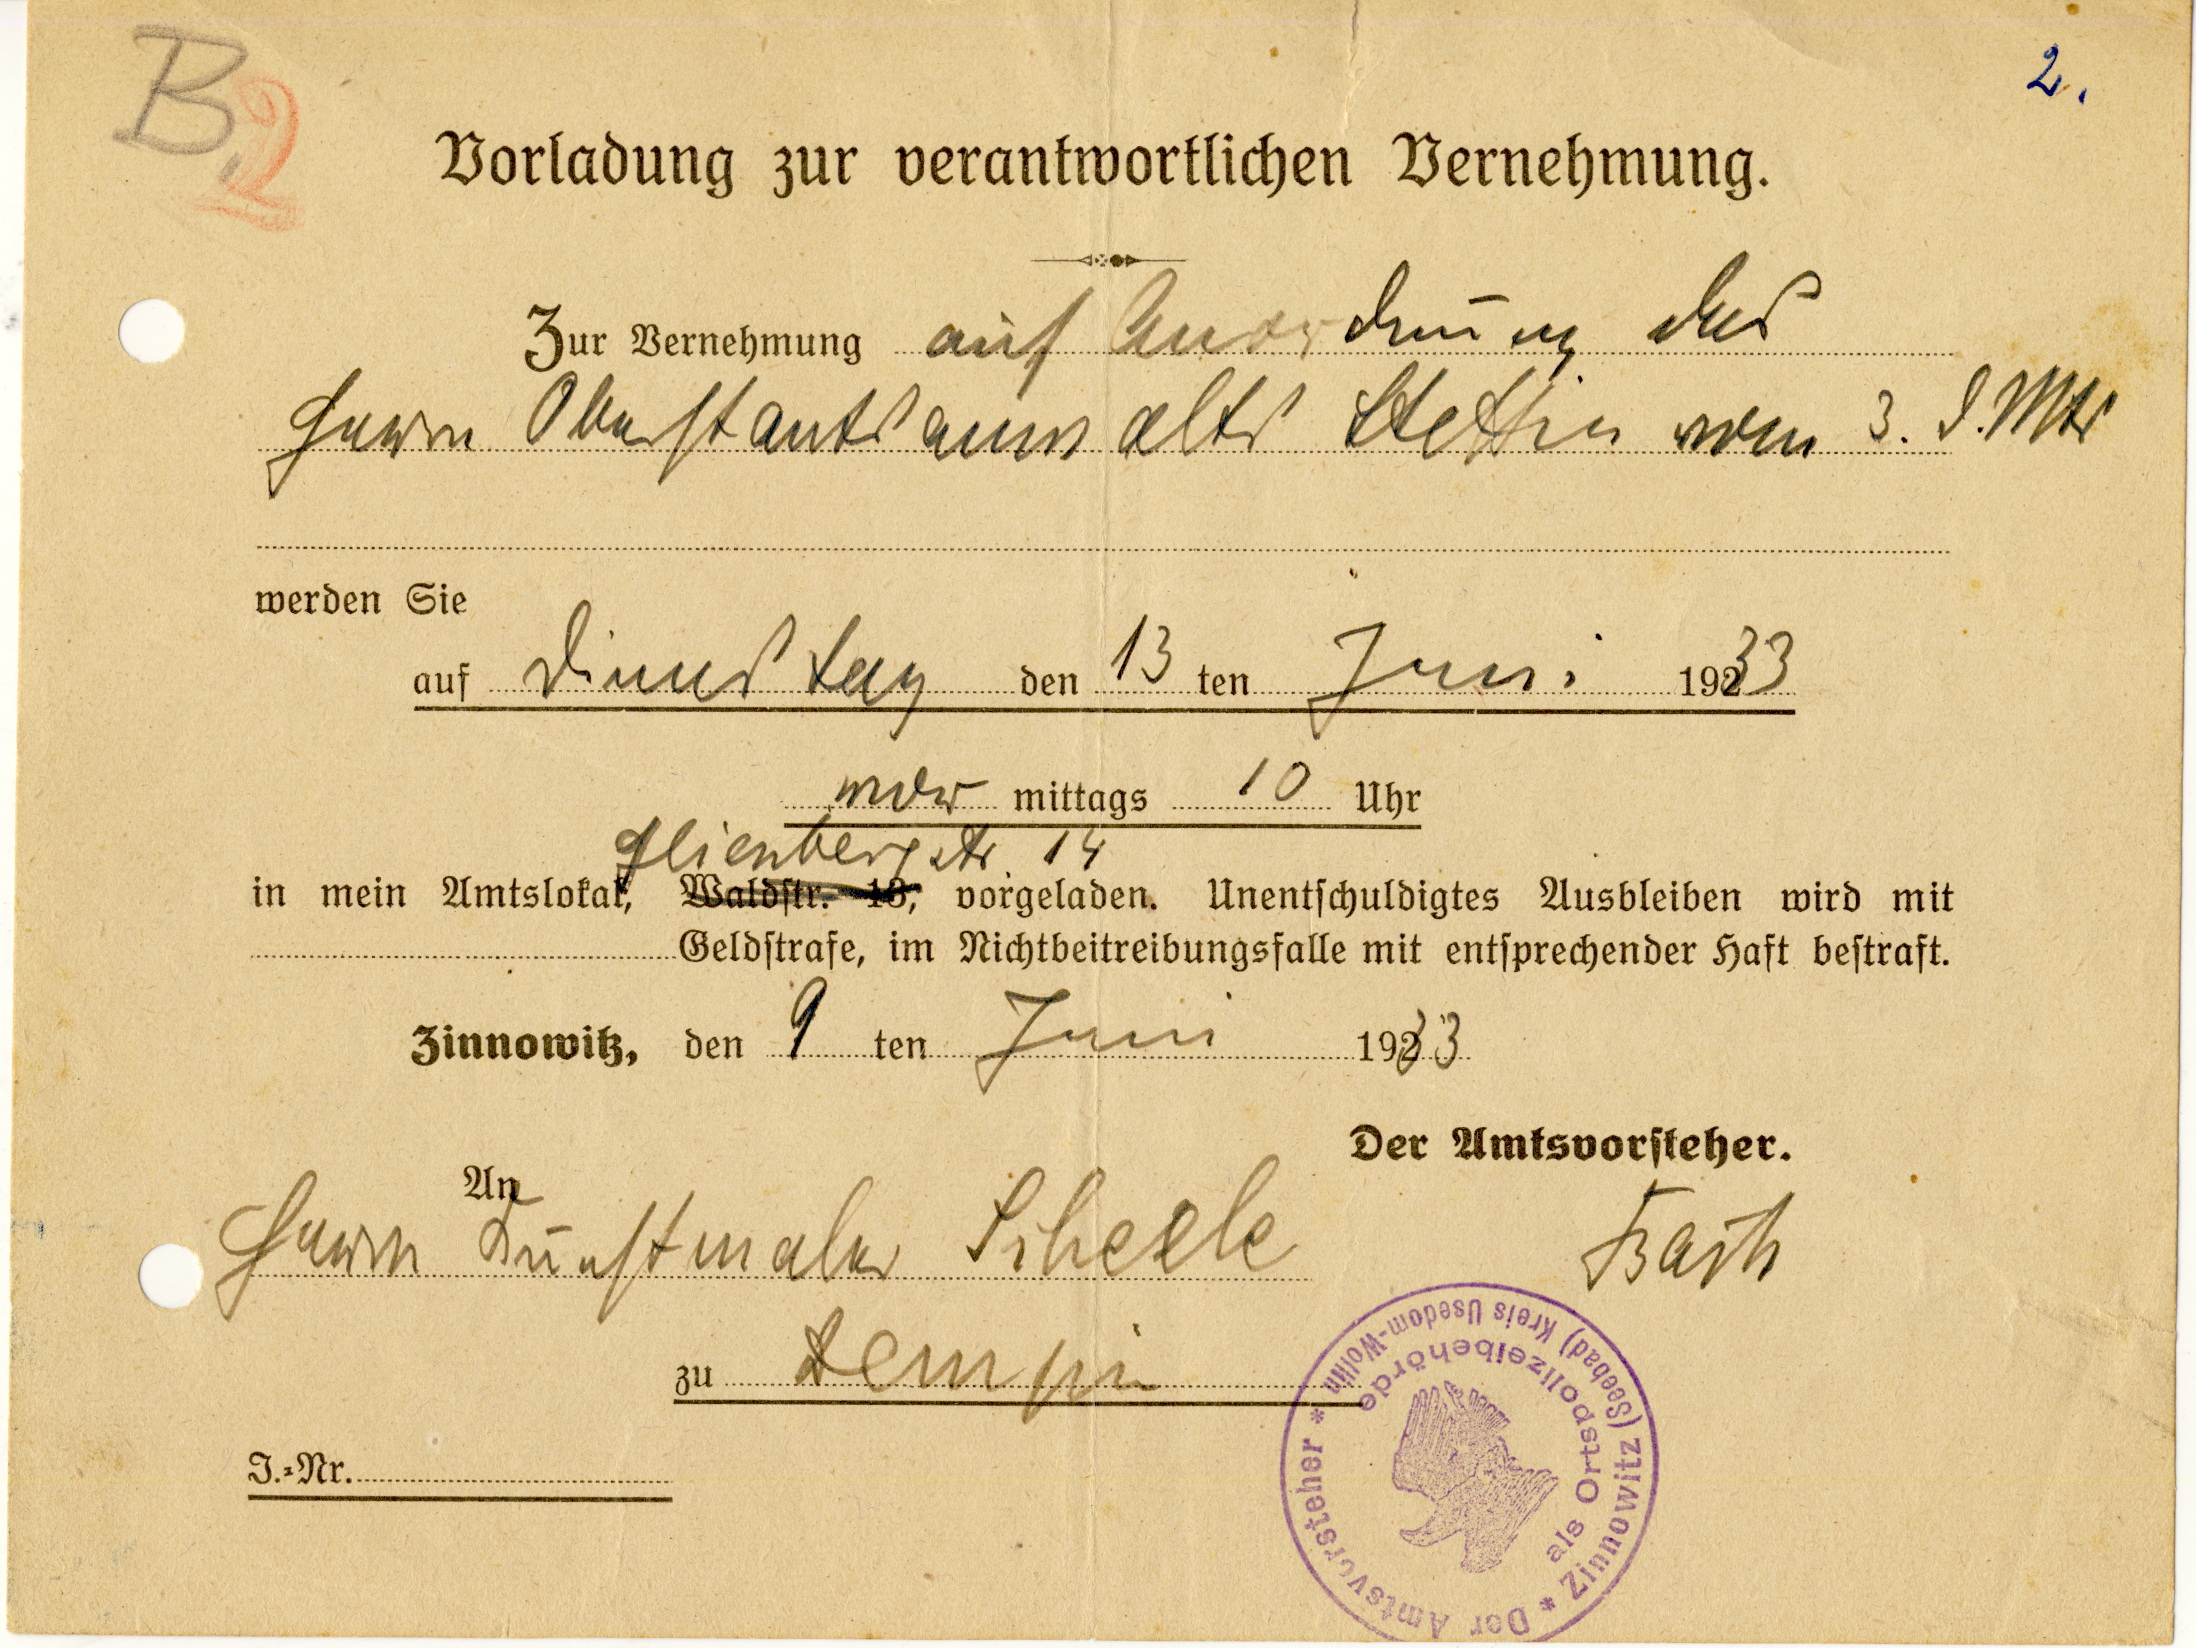 B, 2
2.
Vorladung zur verantwortlichen Vernehmung.
Zur Vernehmung auf Anordnung des
Herrn Oberstaatsanwalts Stettin vom 3. d. Mts
werden Sie
auf Dienstag den 13 ten Juni 1933
vor mittags 10 Uhr
Glienbergstr 14
in mein Amtslokal, Waldstr. 13, vorgeladen. Unentschuldigtes Ausbleiben wird mit
Geldstrafe, im Nichtbeitreibungsfalle mit entsprechender Haft bestraft.
Zinnowitz, den 9 ten Juni 1933
Der Amtsvorsteher.
An
Herrn Kunstmaler Scheele
zu Zempin
J.-Nr.
* Der Amtsvorsteher * Zinnowitz (Seebad) Kreis Usedom-Wollin
als Ortspolizeibehörde